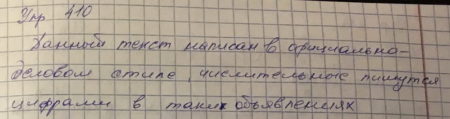 Упр 410
Данный текст написан в официально-
деловом стиле, числительные пишутся
цифрами в таких объявлениях